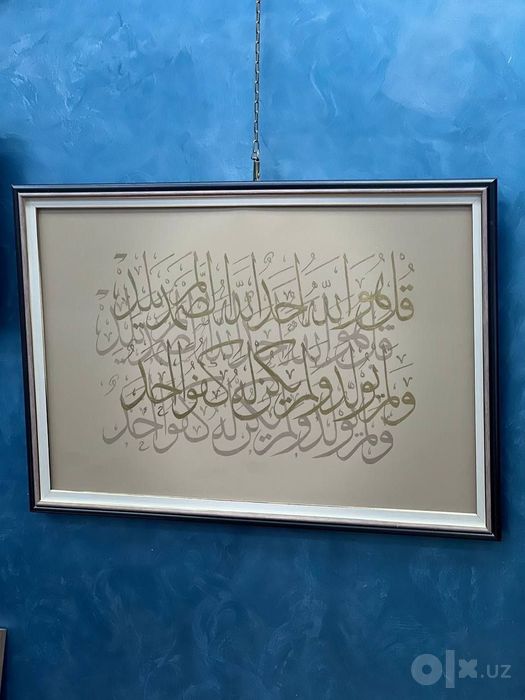 قُلْ هُوَ اللَّهُ أَحَدٌ اللَّهُ الصَّمَدُ لَمْ يَلِدْ
وَلَمْ يُولَدْ وَلَمْ يَكُن لَّهُ كُفُوًا أَحَدٌ
olx.uz